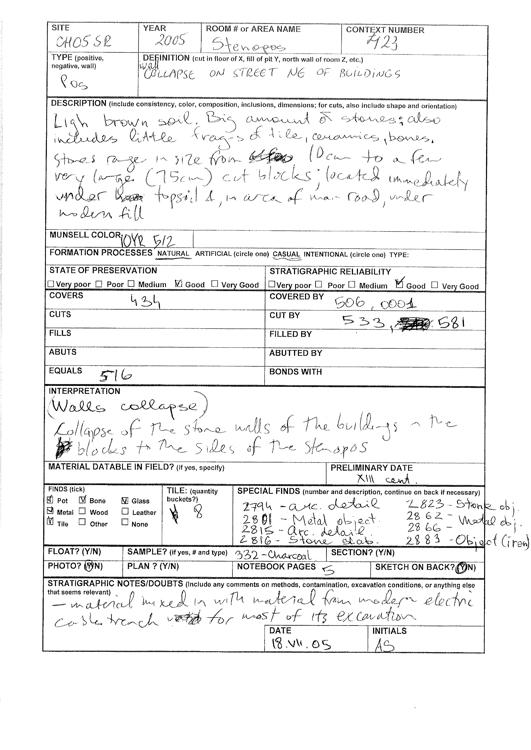 SITE YEAR ROOM # or AREA NAME CONTEXT NUMBER
CH05SR 2005 Stenopos 423
TYPE (positive, negative, wall) DEFINITION (cut in floor of X, fill of pit Y, north wall of room Z, etc.)
Pos wall COLLAPSE ON STREET NE OF BUILDINGS
DESCRIPTION (include consistency, color, composition, inclusions, dimensions; for cuts, also include shape and orientation)
Ligh brown soil. Big amount of stones; also
includes little frags of tile, ceramics, bones.
Stones range in size from 10cm to a few
very large (75cm) cut blocks; located immediately
under topsoil 1, in area of main road, under
modern fill
MUNSELL COLOR: 10YR 5/2
FORMATION PROCESSES NATURAL ARTIFICIAL (circle one) CASUAL INTENTIONAL (circle one) TYPE:
STATE OF PRESERVATION STRATIGRAPHIC RELIABILITY
Very poor Poor Medium Good Very Good Very poor Poor Medium Good Very Good
COVERS 434 COVERED BY 506, 0001
CUTS CUT BY 533, 581
FILLS FILLED BY
ABUTS ABUTTED BY
EQUALS 516 BONDS WITH
INTERPRETATION
(Walls collapse)
Collapse of the stone walls of the buildings in the
blocks to the sides of the Stenopos
MATERIAL DATABLE IN FIELD? (if yes, specify) PRELIMINARY DATE
XIII cent.
FINDS (tick) TILE: (quantity buckets?) SPECIAL FINDS (number and description, continue on back if necessary)
Pot Bone Glass 8 2794 - arc. detail 2823 - Stone obj
Metal Wood Leather 2801 - Metal object 2862 - Metal obj.
Tile Other None 2815 - Arc. detail 2866 -
2816 - Stone slab. 2883 - Object (iron)
FLOAT? (Y/N) SAMPLE? (if yes, # and type) 332-Charcoal SECTION? (Y/N)
PHOTO? (Y/N) PLAN ? (Y/N) NOTEBOOK PAGES 5 SKETCH ON BACK? (Y/N)
STRATIGRAPHIC NOTES/DOUBTS (Include any comments on methods, contamination, excavation conditions, or anything else that seems relevant)
- material mixed in with material from modern electric
cable trench for most of its excavation
DATE INITIALS
18.VII.05 AS